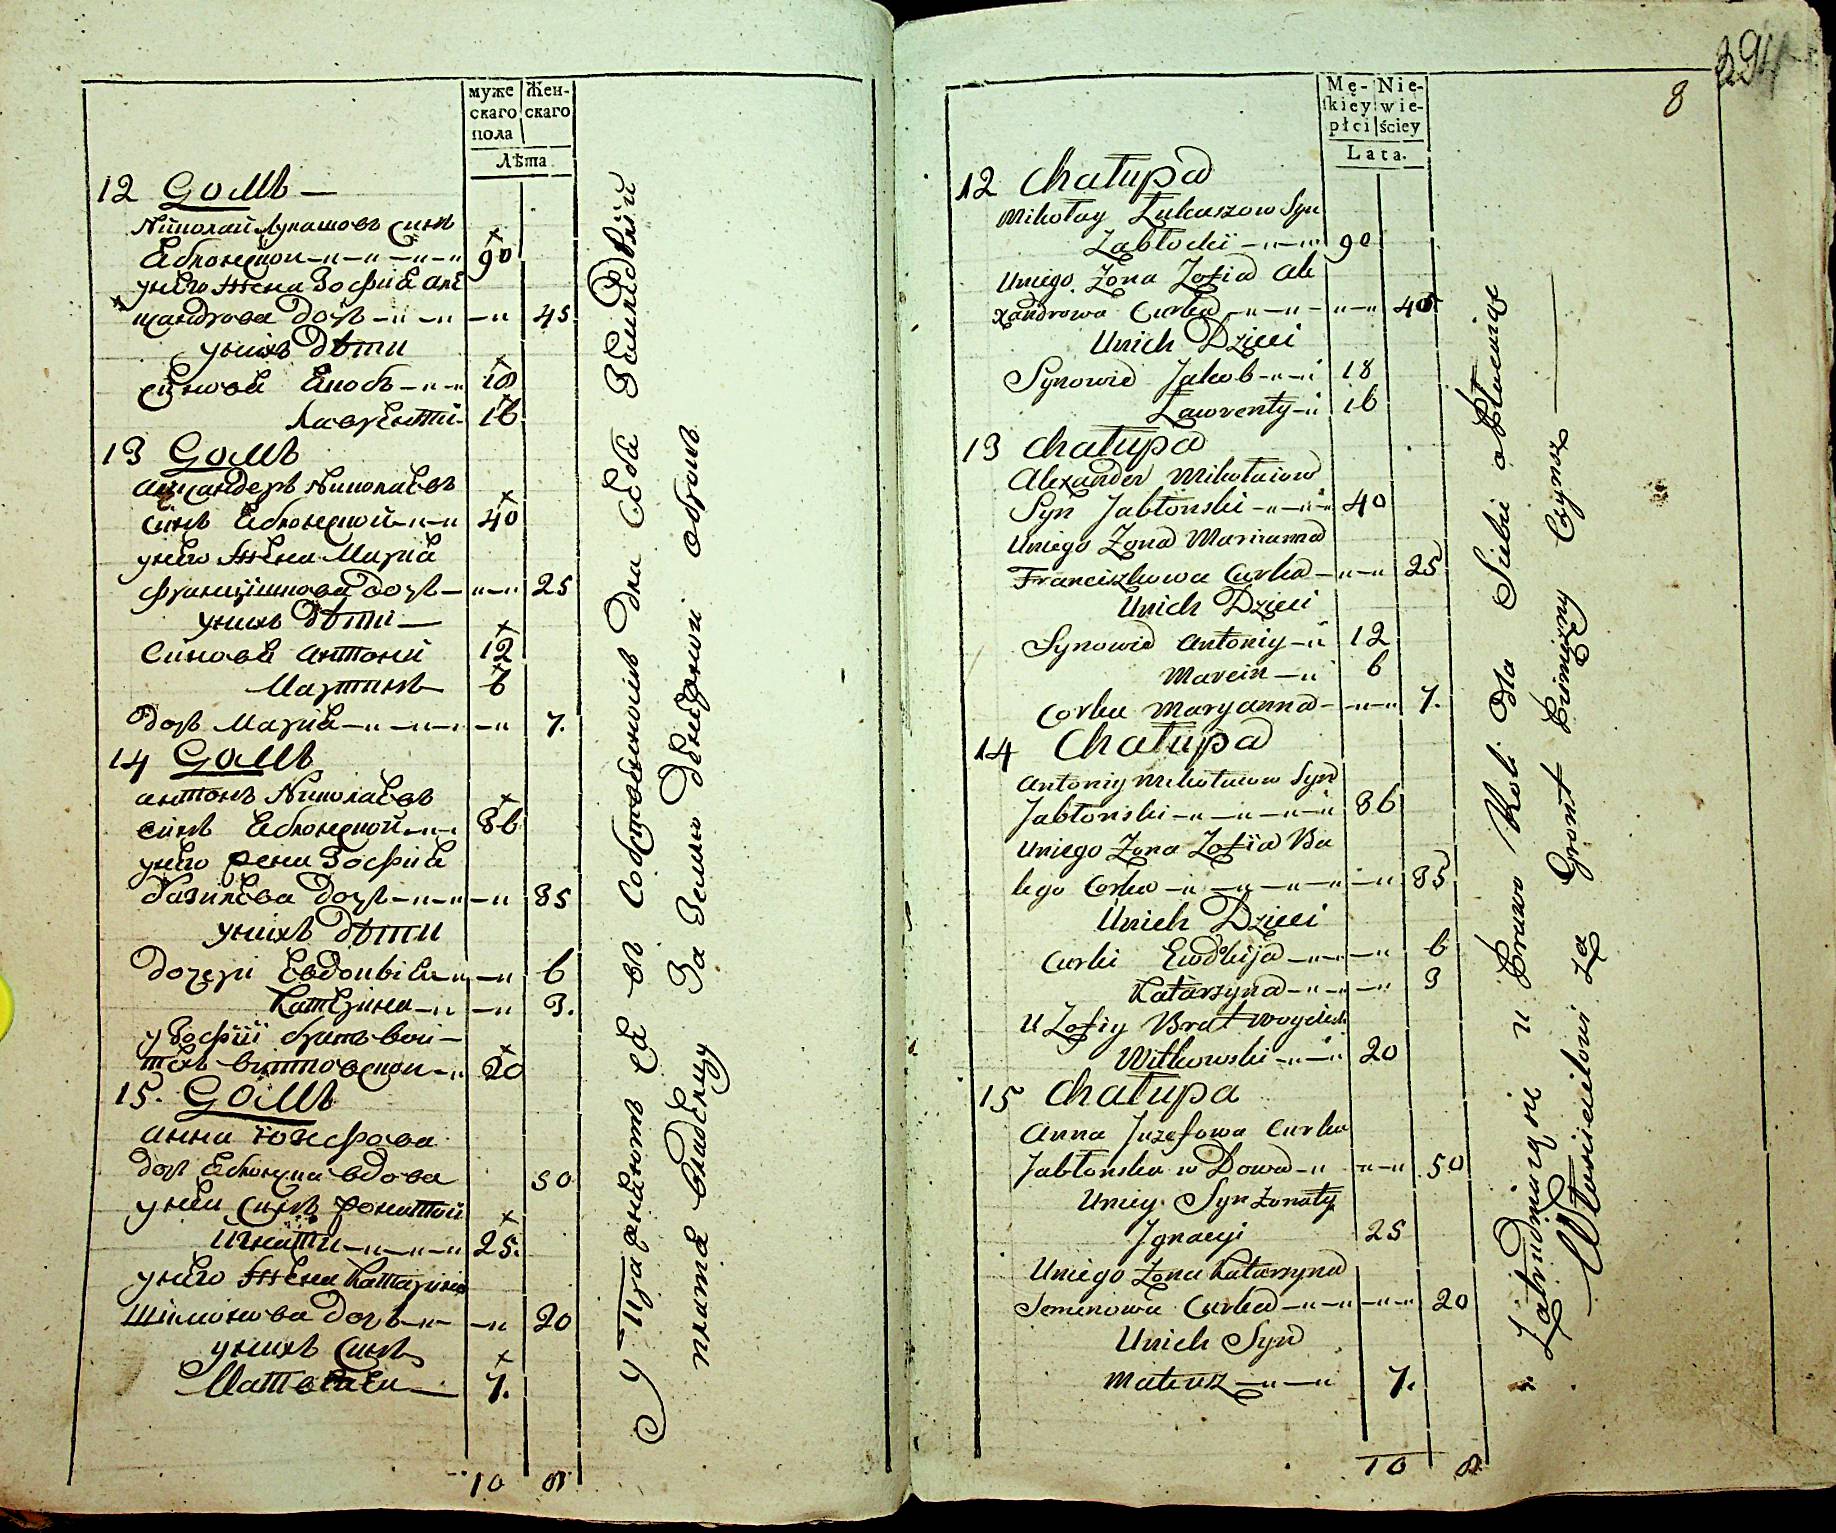 муже Жен-
скаго скаго
пола
Лѣта
12 Домъ —
Николай Лукашовъ синъ
Яблонской 90
унего жена Зофия але
ѯандрова дочь 45
унихъ Дѣти
синове Якобъ 18
Лаврентий 16
13 Домъ
Алеѯандеръ Николаевъ
синъ Яблонской 40
унего жена Мария
Францишкова дочь 25
унихъ Дѣти
синове Антоний 12
Мартинъ 6
дочь Мария 7.
14 Домъ
Антонъ Николаевъ
синъ Яблонской 36
унего жена Зофия
Базилева дочь 35
унихъ Дѣти
дочери Евдокиѣя 6
Катерина 3.
у Зофии братъ вой-
техъ витковской 20
15. Домъ
Анна Юзефова
дочь Яблонска вдова 50
унеи Синъ женатой
Игнатй 25.
унего жена Катарина
Шимонова дочь 20
унихъ Синъ
Матвеей 7.
10 8
Упражняютъ ся въ Собственномъ для Себя
плата владелцу За Землю денежной оброкъ
294
8
Mę- Nie-
skiey wie-
płci ściey
Lata.
12 Chałupa
Mikołay Łukaszow Syn
Jabłocki 90
Uniego Żona Zofia Ale
xandrowa Curka 45
Unich Dzieci
Synowie Jakob 18
Ławrenty 16
13 Chałupa
Alexander Mikołaiow
Syn Jabłonski 40
Uniego Żona Marianna
Franciszkowa Curka 25
Unich Dzieci
Synowie Antoniy 12
Marcin 6
Corka Maryanna 7.
14 Chałupa
Antoniy Mikołaiow Syn
Jabłonski 36
Uniego Żona Zofia Ba
lego Corka 35
Unich Dzieci
Curki Ewdkija 6
Katarzyna 3
U Zofiy Brat Woyciech
Witkowski 20
15 Chałupa
Anna Juzefowa Curka
Jabłonska w Dowa 50
Uniey Syn Żonaty
Jgnacyi 25
Uniego Żona Katarzyna
Semenowa Curka 20
Unich Syn
Mateusz 7.
10 8
Zatrudniaią się u Prawo Roli dla Siebie a Płacniąc
Własicielowi za Gront Pienięzny Czynsz